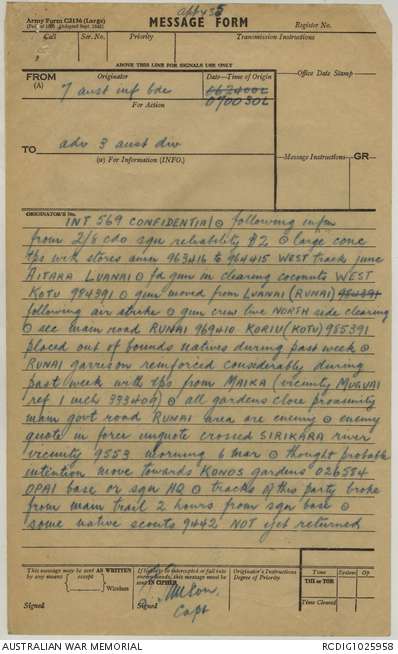 appx 55
Army Form C2136 (Large)
MESSAGE FORM
Register No.
Call
Ser. No.
Priority
Transmission Instructions
ABOVE THIS LINE FOR SIGNALS USE ONLY
FROM
(A)
Originator
Date—Time of Origin
Office Date Stamp
7 aust inf bde
070030L
For Action
TO
adv 3 aust div
(W) For Information (INFO.)
Message Instructions
GR
ORIGINATOR'S No.
INT 569 CONFIDENTIAL ⊙ following infm
from 2/8 cdo sqn reliability B2 ⊙ large conc
tps with stores amn 963416 to 964415 WEST track junc
AITARA LUANAI ⊙ fd gun in clearing coconuts WEST
KOTU 984391 ⊙ gun moved from LUANAI (RUNAI) 984391
following air strike ⊙ gun crew live NORTH side clearing
⊙ see main road RUNAI 969410 KORIU (KOTU) 985391
placed out of bounds natives during past week ⊙
RUNAI garrison reinforced considerably during
past week with tps from MAIKA (vicinity MUGUAI
ref 1 inch 333409) ⊙ all gardens close proximity
main govt road RUNAI area are enemy ⊙ enemy
quote in force unquote crossed SIRIKARA river
vicinity 9553 morning 6 mar ⊙ thought probable
intention move towards KONOS gardens 026584
OPAI base or sqn HQ ⊙ tracks of this party broke
from main trail 2 hours from sqn base ⊙
some native scouts 9442 NOT yet returned
This message may be sent AS WRITTEN
by any means
except
Wireless
Signed
If liable to be intercepted or fall into
enemy hands, this message must be
sent IN CIPHER
Signed
Capt
Originator's Instructions
Degree of Priority
Time
System
Op
THI or TOR
Time Cleared
AUSTRALIAN WAR MEMORIAL
RCDIG1025958